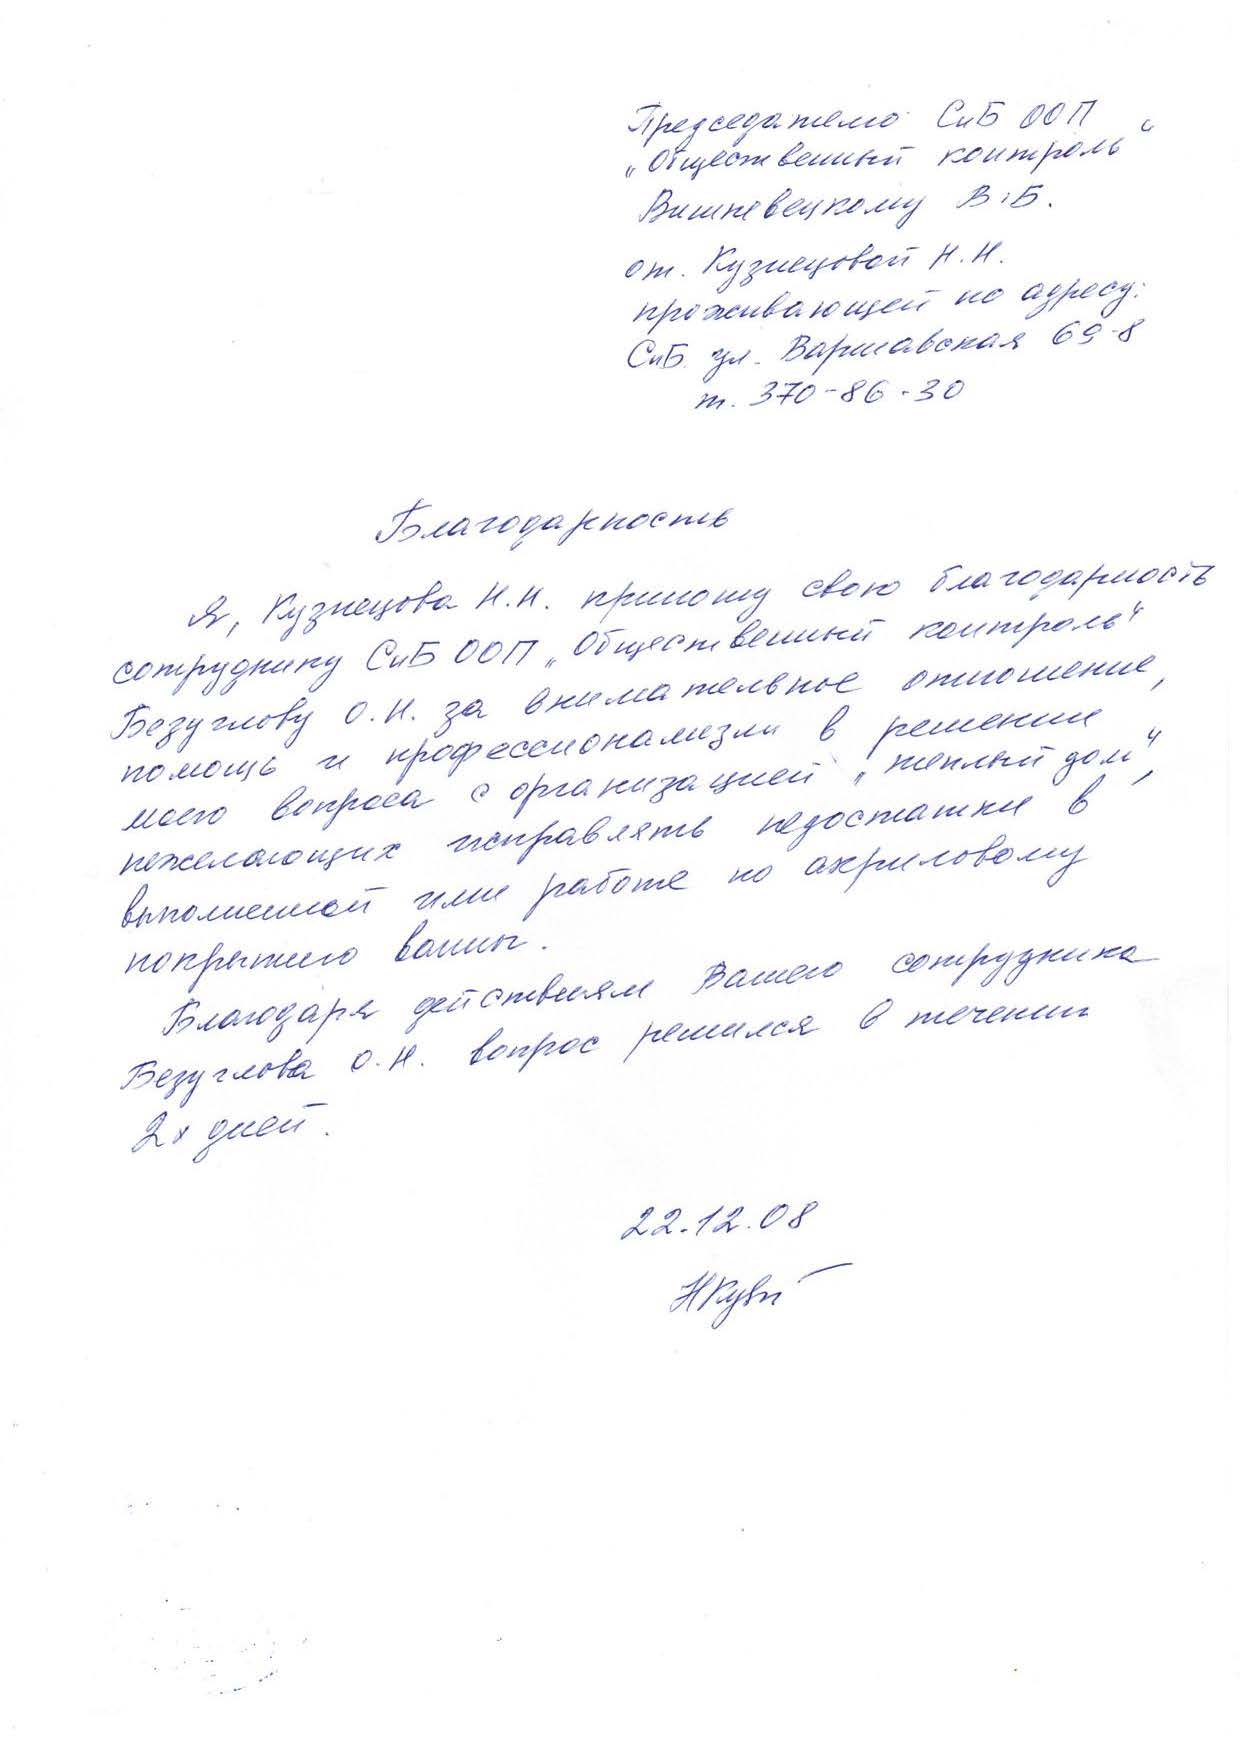 Председателю СпБ ООП
„Общественный контроль“
Вишневецкому В.Б.
от. Кузнецовой Н.Н.
проживающей по адресу:
СпБ. ул. Варшавская 69-8
т. 370-86-30
Благодарность
Я, Кузнецова Н.Н. приношу свою благодарность
сотруднику СпБ ООП „Общественный контроль“
Безуглову О.Н. за внимательное отношение,
помощь и профессионализм в решении
моего вопроса с организацией „теплый дом“,
нежелающих исправлять недостатки в
выполненной ими работе по акриловому
покрытию ванны.
Благодаря действиям Вашего сотрудника
Безуглова О.Н. вопрос решился в течении
2х дней.
22.12.08